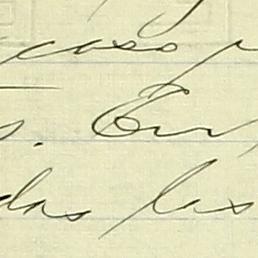 caso
s. En
das las